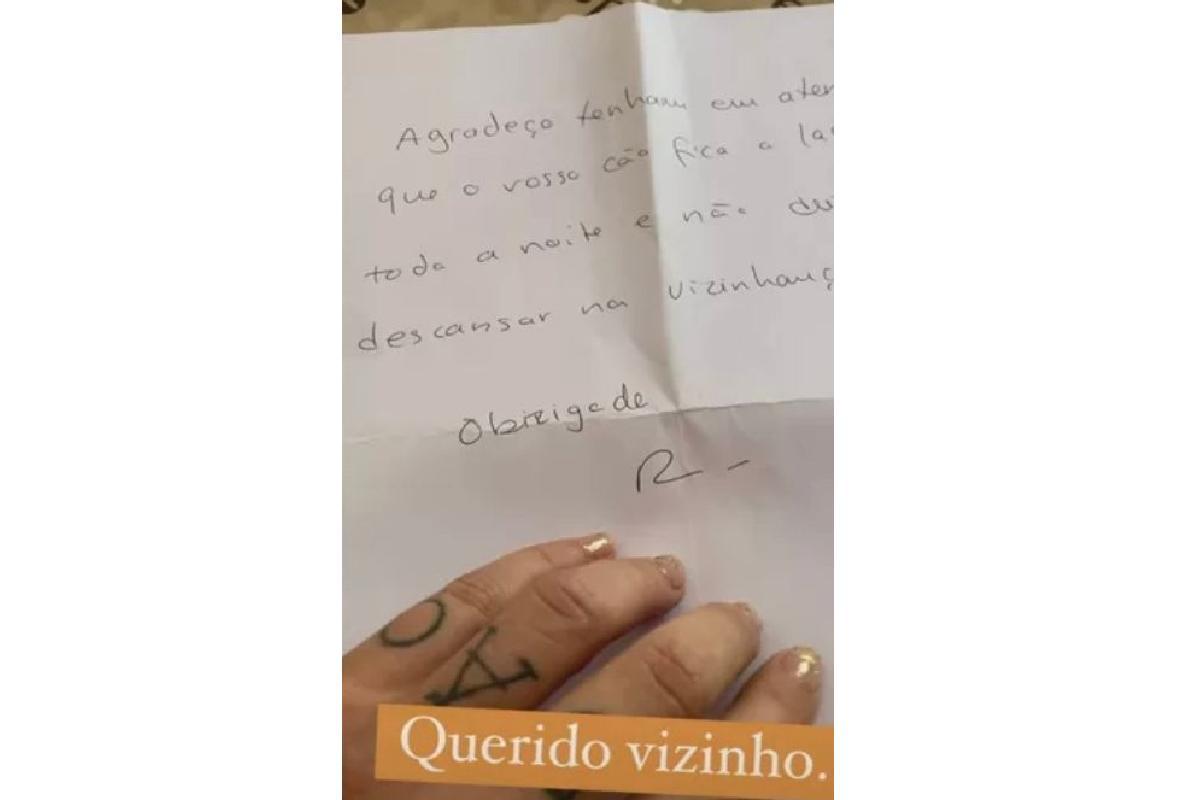 Agradeço tenham em aten
que o vosso cão fica a la
toda a noite e não du
descansar na vizinhanç
Obizigado
R-
O A
Querido vizinho.